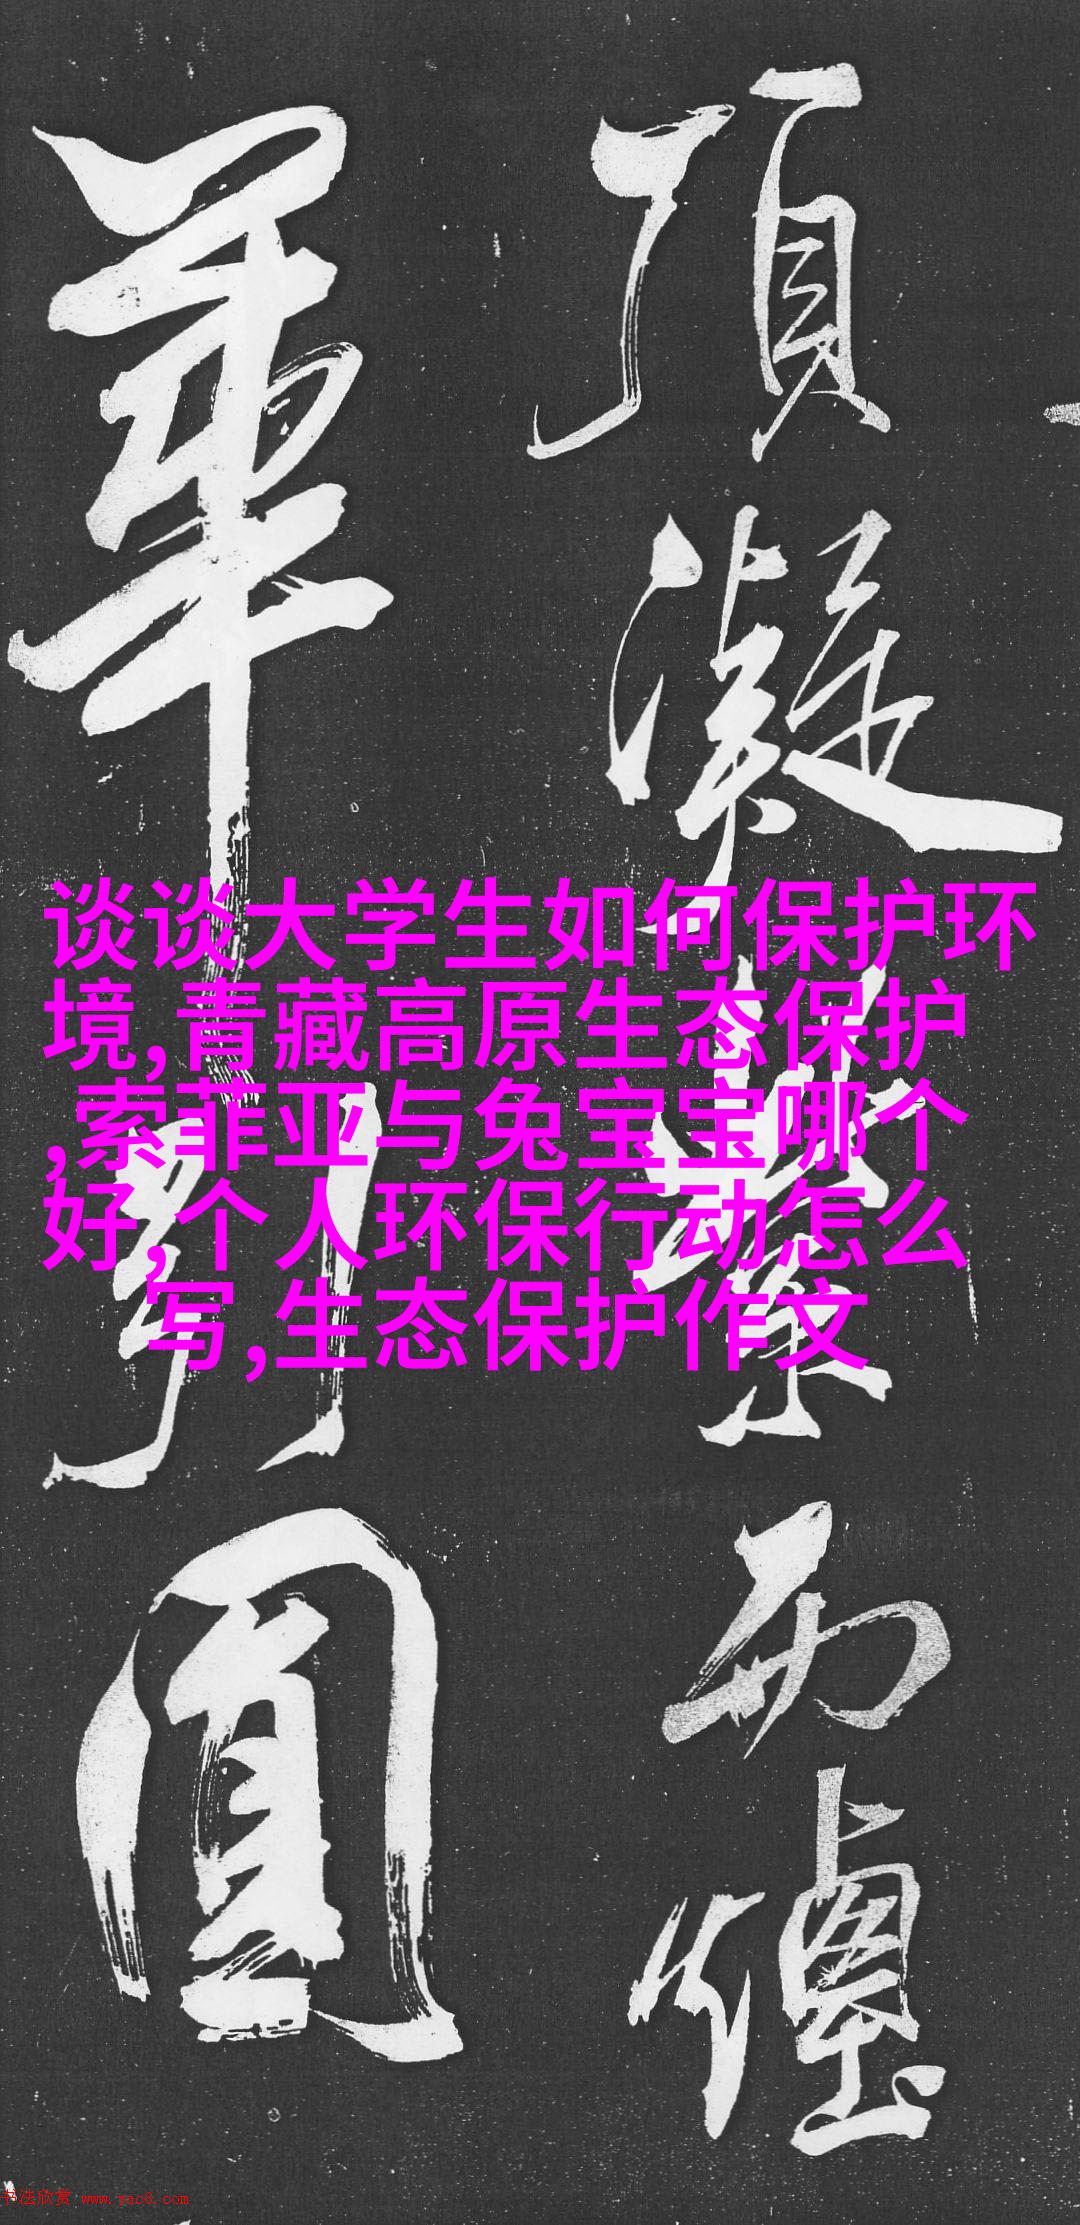 谈谈大学生如何保护环
境,青藏高原生态保护
,索菲亚与兔宝宝哪个
好,个人环保行动怎么
写,生态保护作文
頂凝紫而煙
華
圓
书法欣赏 www.yac8.com